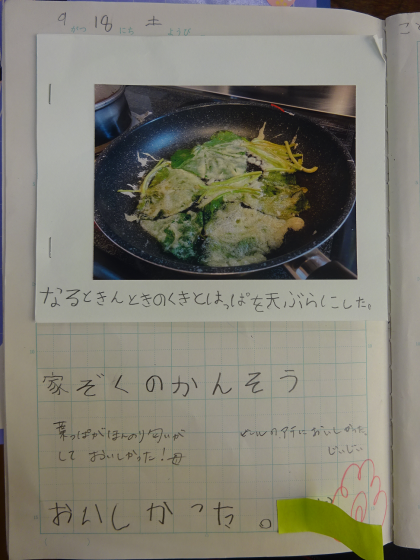 9がつ18にち土ようび
なるときんときのくきとはっぱを天ぷらにした。
家ぞくのかんそう
葉っぱがほんのり匂いが
しておいしかった!母
ビールのアテにおいしかった
じいじい
おいしかった。